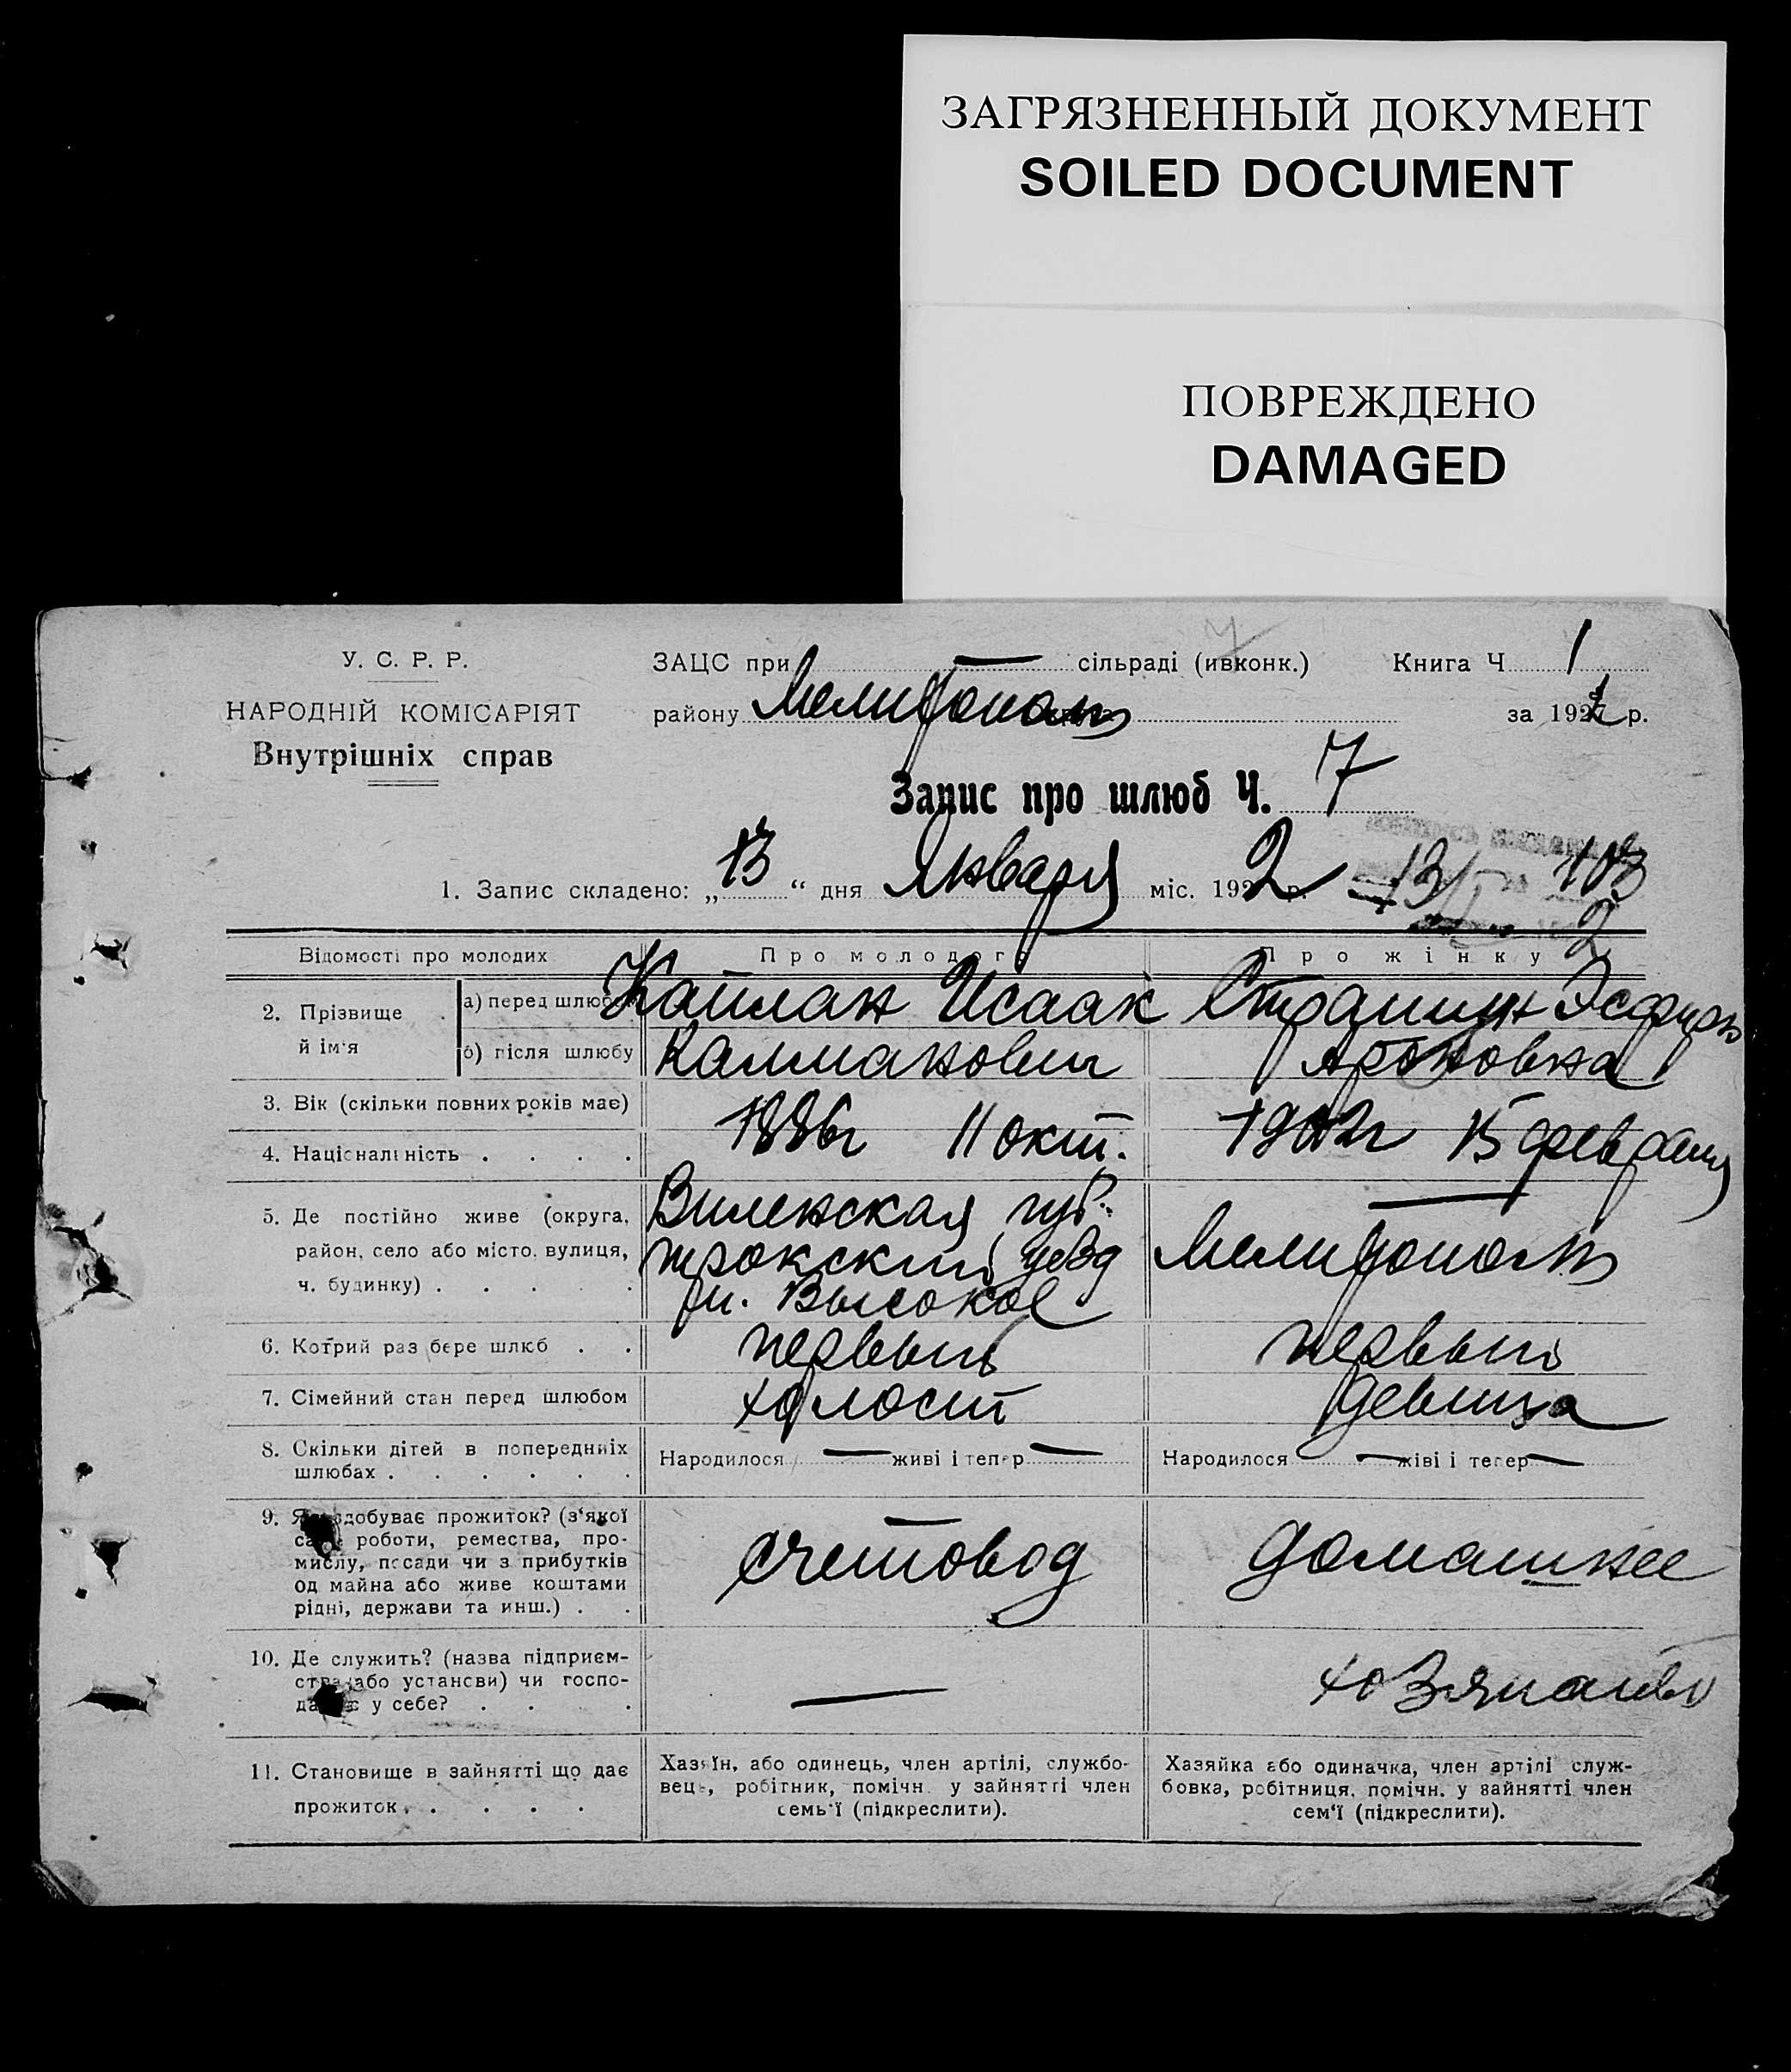 ЗАГРЯЗНЕННЫЙ ДОКУМЕНТ
SOILED DOCUMENT
ПОВРЕЖДЕНО
DAMAGED
У. С. Р. Р.
НАРОДНІЙ КОМІСАРІЯТ
Внутрішніх справ
ЗАЦС при — сільраді (ивконк.) Книга Ч 1
району Мелитополь за 192 р.
Запис про шлюб Ч. 7
1. Запис складено: „13“ дня Января міс. 1922 р.
Відомості про молодих Про молодого Про жінку
2. Прізвище й ім'я
а) перед шлюбом Каплан Исаак Эсфирь
б) після шлюбу Калманович Ароновна
3. Вік (скільки повних років має) 1886г 11 окт. 1902г 15 февраля
4. Національність . . . . —
5. Де постійно живе (округа, Виленская губ.
район, село або місто, вулиця, трокский уезд Мелитополь
ч. будинку) . . . . . м. Высокое
6. Котрий раз бере шлюб . . первый первый
7. Сімейний стан перед шлюбом холост девица
8. Скільки дітей в попередніх Народилося — живі і тепер — Народилося — живі і тепер —
шлюбах . . . . . .
9. Як здобуває прожиток? (з'якої
саме роботи, ремества, про-
мислу, посади чи з прибутків счетовод домашнее
од майна або живе коштами
рідні, держави та инш.) . .
10. Де служить? (назва підприєм-
ства або установи) чи госпо- —
дарює у себе? . . .
11. Становище в зайнятті що дає
прожиток . . . . .
Хазяїн, або одинець, член артілі, службо-
вець, робітник, помічн. у зайнятті член
семь'ї (підкреслити).
Хазяйка або одиначка, член артілі служ-
бовка, робітниця, помічн. у зайнятті член
сем'ї (підкреслити).